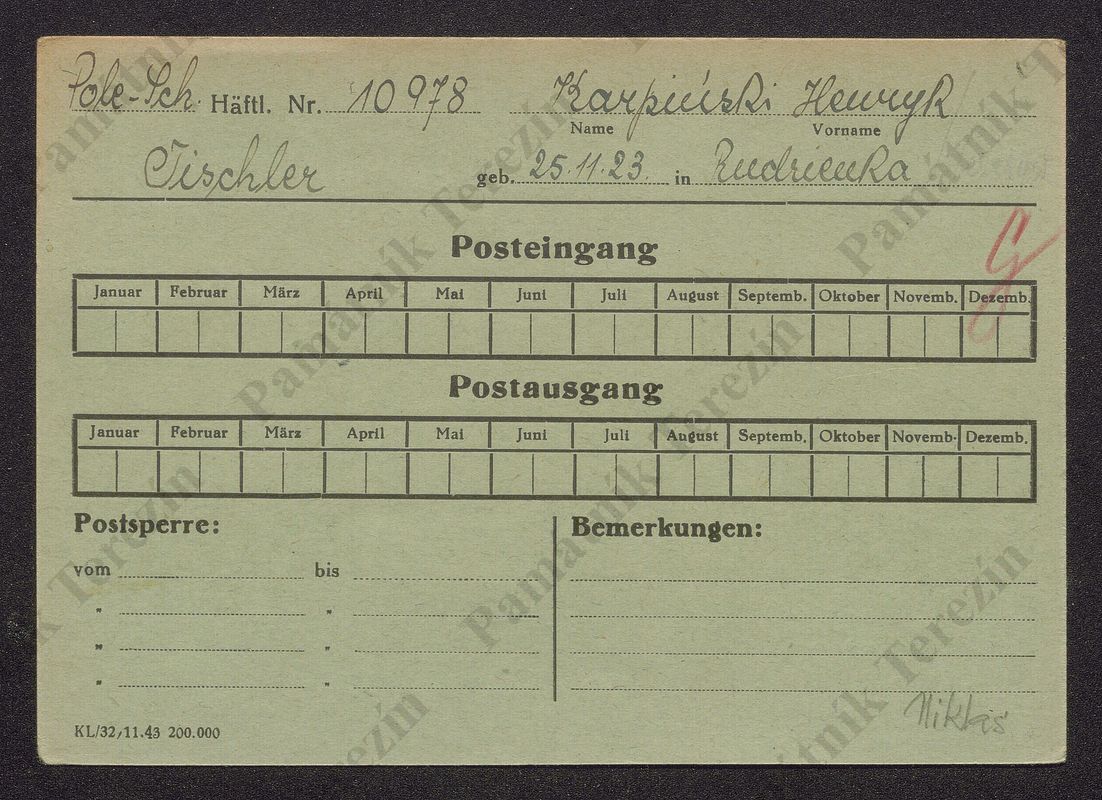 Pole-Sch. Häftl. Nr. 10978 Karpiński Henryk
Name Vorname
Tischler geb. 25.11.23. in Rudzienka
Posteingang
Januar Februar März April Mai Juni Juli August Septemb. Oktober Novemb. Dezemb.
Postausgang
Januar Februar März April Mai Juni Juli August Septemb. Oktober Novemb. Dezemb.
Postsperre: Bemerkungen:
vom bis
" "
" "
" "
Niklas
KL/32/11.43 200.000
Památník Terezín